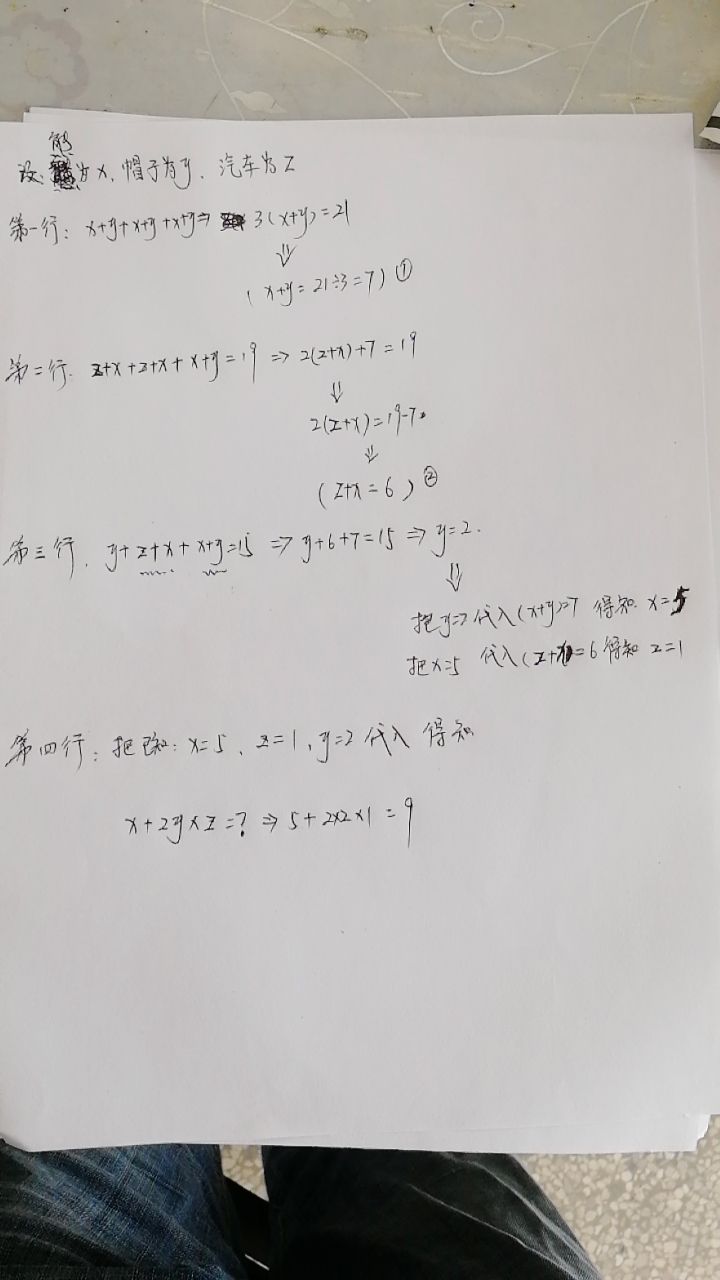 设: 熊为x, 帽子为y, 汽车为z
第一行: x+y+x+y+x+y⇒ 3(x+y)=21
⇓
(x+y=21÷3=7) ①
第二行. z+x+z+x+x+y=19 ⇒ 2(z+x)+7=19
⇓
2(z+x)=19-7
⇓
(z+x=6) ②
第三行. y+z+x+x+y=15 ⇒ y+6+7=15 ⇒ y=2.
⇓
把y=2代入(x+y)=7 得知. x=5
把x=5 代入(z+x)=6 得知 z=1
第四行: 把已知: x=5、z=1, y=2 代入 得知
x+2y×z=? ⇒ 5+2×2×1=9